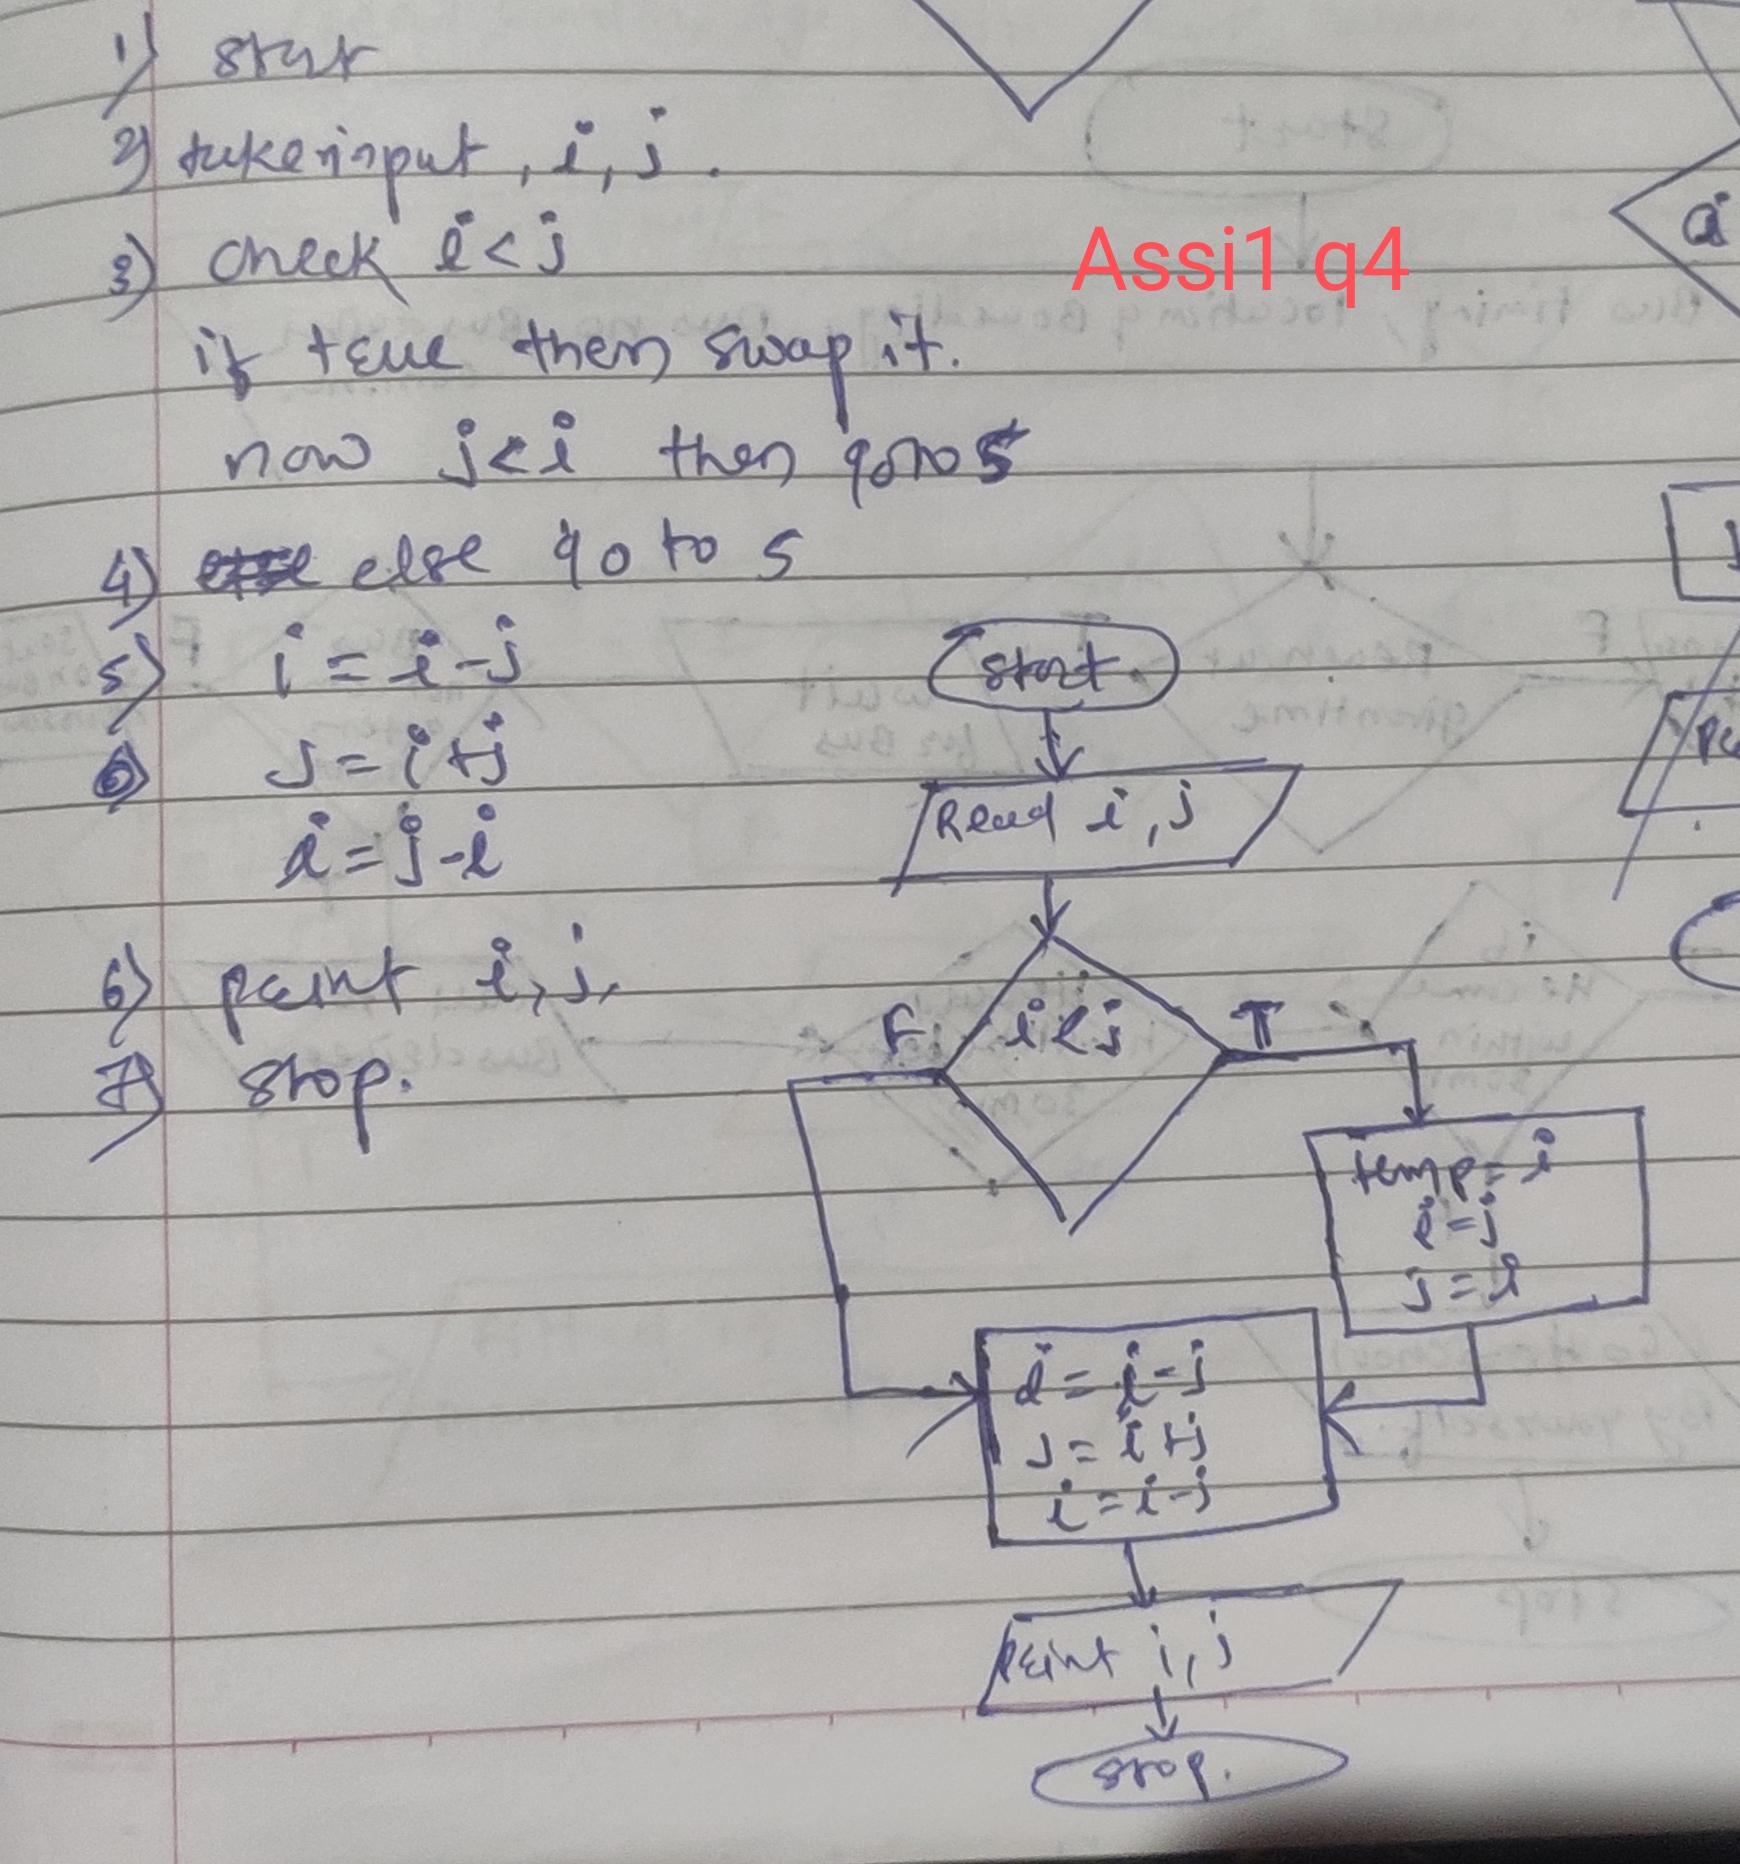 1) start
2) take input, i, j.
3) check i < j
if true then swap it.
now j < i then goto 5
4) else go to 5
5) i = i - j
j = i + j
i = j - i
6) print i, j,
7) stop.
Assi1 q4
start
Read i, j
i < j
F
T
temp = i
i = j
j = i
i = i - j
j = i + j
i = i - j
print i, j
stop.